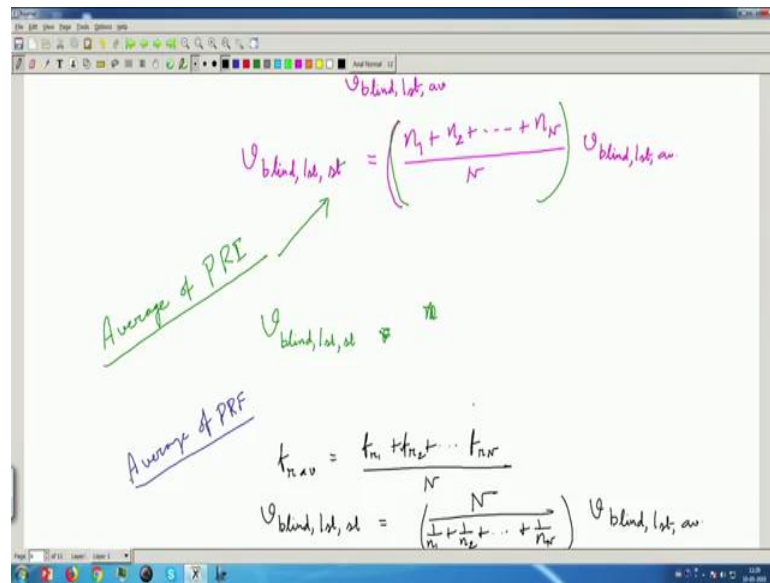 Journal
File Edit View Page Tools Options Help
Arial Normal 12
υ blind, 1st, av
υ blind, 1st, st = ( n₁ + n₂ + --- + n_N / N ) υ blind, 1st, av.
Average of PRI
υ blind, 1st, st
Average of PRF
f_r av = f_r₁ + f_r₂ + ... f_r N / N
υ blind, 1st, st = ( N / 1/n₁ + 1/n₂ + ... + 1/n_N ) υ blind, 1st, av.
Page of 11 Layer: Layer 1